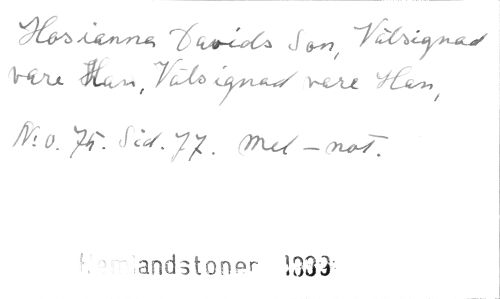 Hosianna Davids Son, Välsignad
vare Han, Välsignad vare Han,
No. 75. Sid. 77. Mel-not.
Hemlandstoner